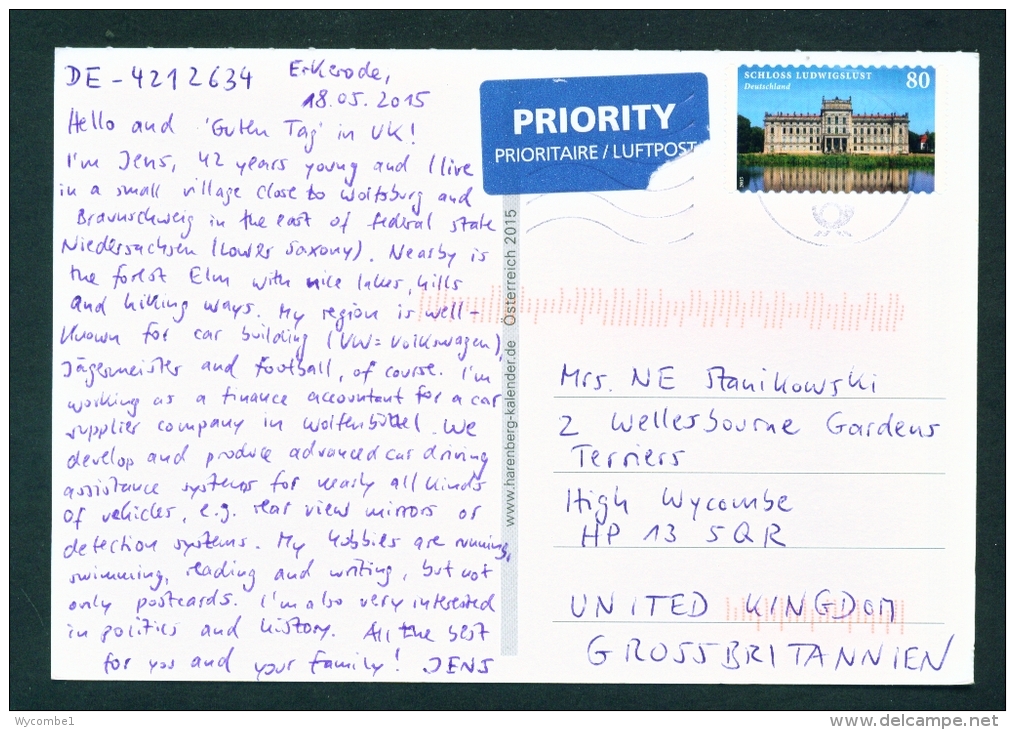 DE-4212634
Erkerode,
18.05.2015
Hello and 'Guten Tag' in UK!
I'm Jens, 42 years young and I live
in a small village close to Wolfsburg and
Braunschweig in the east of federal state
Niedersachsen (Lower Saxony). Nearby is
the forest Elm with nice lakes, hills
and hiking ways. My region is well-
known for car building (VW = Volkswagen),
Jägermeister and football, of course. I'm
working as a finance accountant for a car
supplier company in Wolfenbüttel. We
develop and produce advanced car driving
assistance systems for nearly all kinds
of vehicles, e.g. rear view mirrors or
detection systems. My hobbies are running,
swimming, reading and writing, but not
only postcards. I'm also very interested
in politics and history. All the best
for you and your family! JENS
www.harenberg-kalender.de Österreich 2015
PRIORITY
PRIORITAIRE / LUFTPOST
SCHLOSS LUDWIGSLUST 80
Deutschland
2015
Mrs. NE Stanikowski
2 Wellesbourne Gardens
Terriers
High Wycombe
HP 13 5QR
UNITED KINGDOM
GROSSBRITANNIEN
Wycombe1
www.delcampe.net